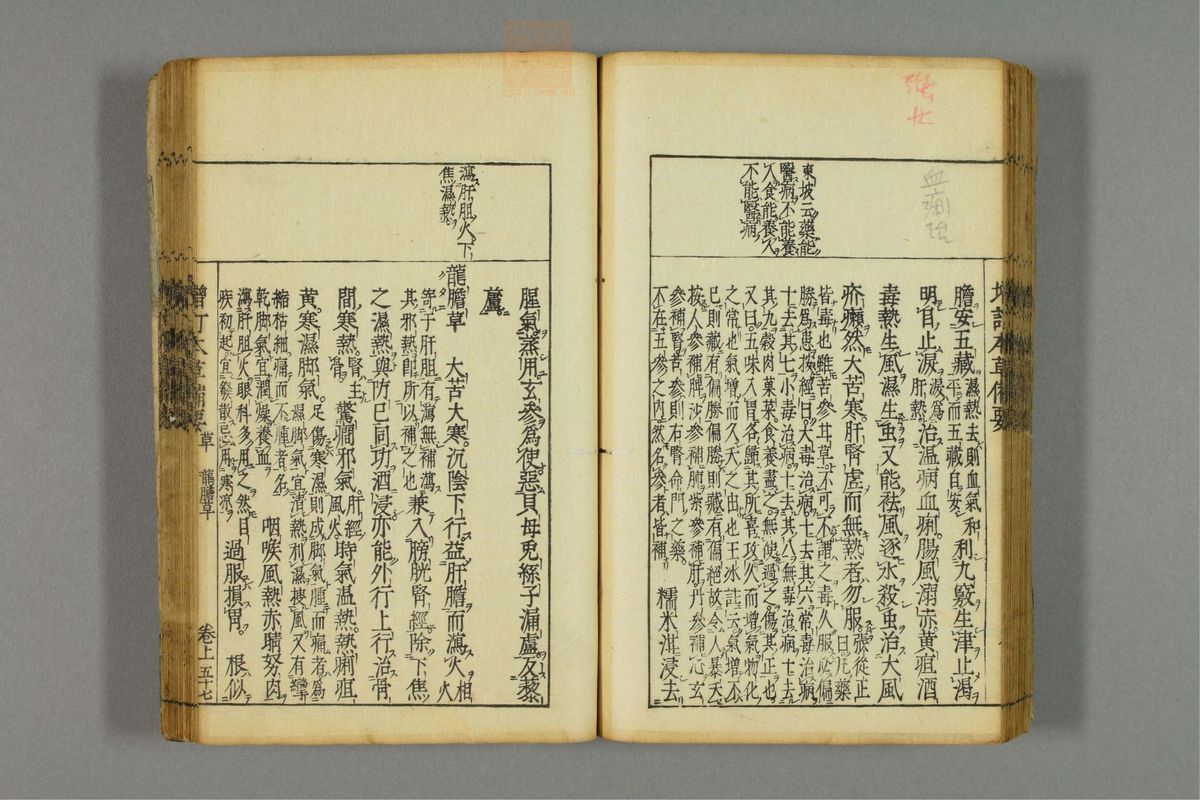 東坡云藥能
醫病不能養
人食能養人
不能醫病
膽安五藏濕熱去則血氣和平而五藏自安利九竅生津止渴
明目止淚淚爲肝熱治温病血痢腸風溺赤黃疸酒
毒熱生風濕生虫又能祛風逐水殺虫治大風
疥癩然大苦寒肝腎虛而無熱者勿服張從正曰凡藥
皆毒也雖苦參甘草不可不謂之毒久服必偏
勝爲患按經曰大毒治病十去其六常毒治病
十去其七小毒治病十去其八無毒治病十去
其九穀肉菓菜食養盡之無使過之傷其正也
又曰五味入胃各歸其所喜攻久而增氣物化
之常也氣增而久夭之由也王冰註云氣增不
已則藏有偏勝偏勝則藏有偏絕故令人暴夭
按人參補脾沙參補肺紫參補肝丹參補心玄
參補腎苦參則右腎命門之藥
不在五參之內然名參者皆補糯米泔浸去
腥氣蒸用玄參爲使惡貝母兎絲子漏盧反藜
蘆
瀉肝胆火下
焦濕熱
龍膽草 大苦大寒沉陰下行益肝膽而瀉火相火
寄于肝胆有瀉無補瀉
其邪熱卽所以補之也兼入膀胱腎經除下焦
之濕熱與防已同功酒浸亦能外行上行治骨
間寒熱腎主骨驚癇邪氣肝經風火時氣温熱熱痢疸
黃寒濕脚氣足傷寒濕則成脚氣腫而痛者爲濕脚氣宜清熱利濕搜風又有攣
縮枯細痛而不腫者名
乾脚氣宜潤燥養血咽喉風熱赤睛努肉
瀉肝胆火眼科多用之然目
疾初起宜發散忌用寒凉過服損胃根似
草 龍膽草
卷上五十七